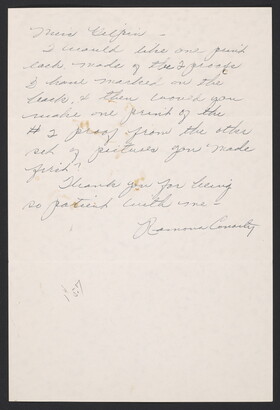 Miss Halpin -
I would like one print
each, made of the 2 proofs
I have marked on the
back, & then would you
make one print of the
# 2 proof from the other
set of pictures you made
first?
Thank you for being
so patient with me -
Ramona